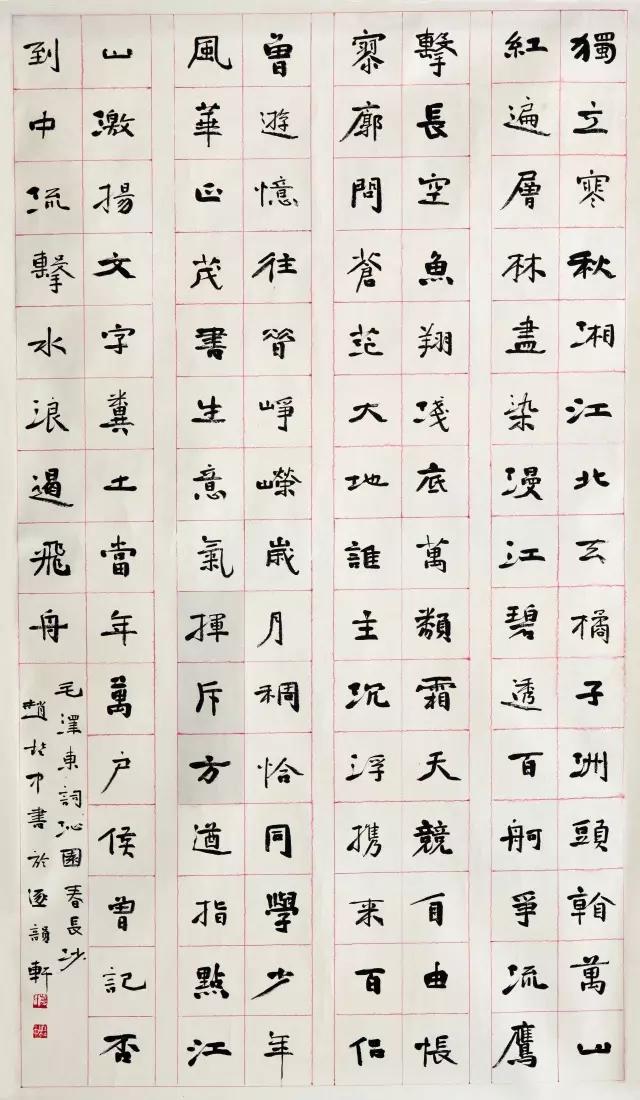 獨立寒秋湘江北去橘子洲頭看萬山
紅遍層林盡染漫江碧透百舸爭流鷹
擊長空魚翔淺底萬類霜天競自由悵
寥廓問蒼茫大地誰主沉浮携来百侣
曾遊憶往昔崢嶸歲月稠恰同學少年
風華正茂書生意氣揮斥方遒指點江
山激揚文字糞土當年萬户侯曾記否
到中流擊水浪遏飛舟
毛澤東詞沁園春長沙
趙中書於逐韻軒